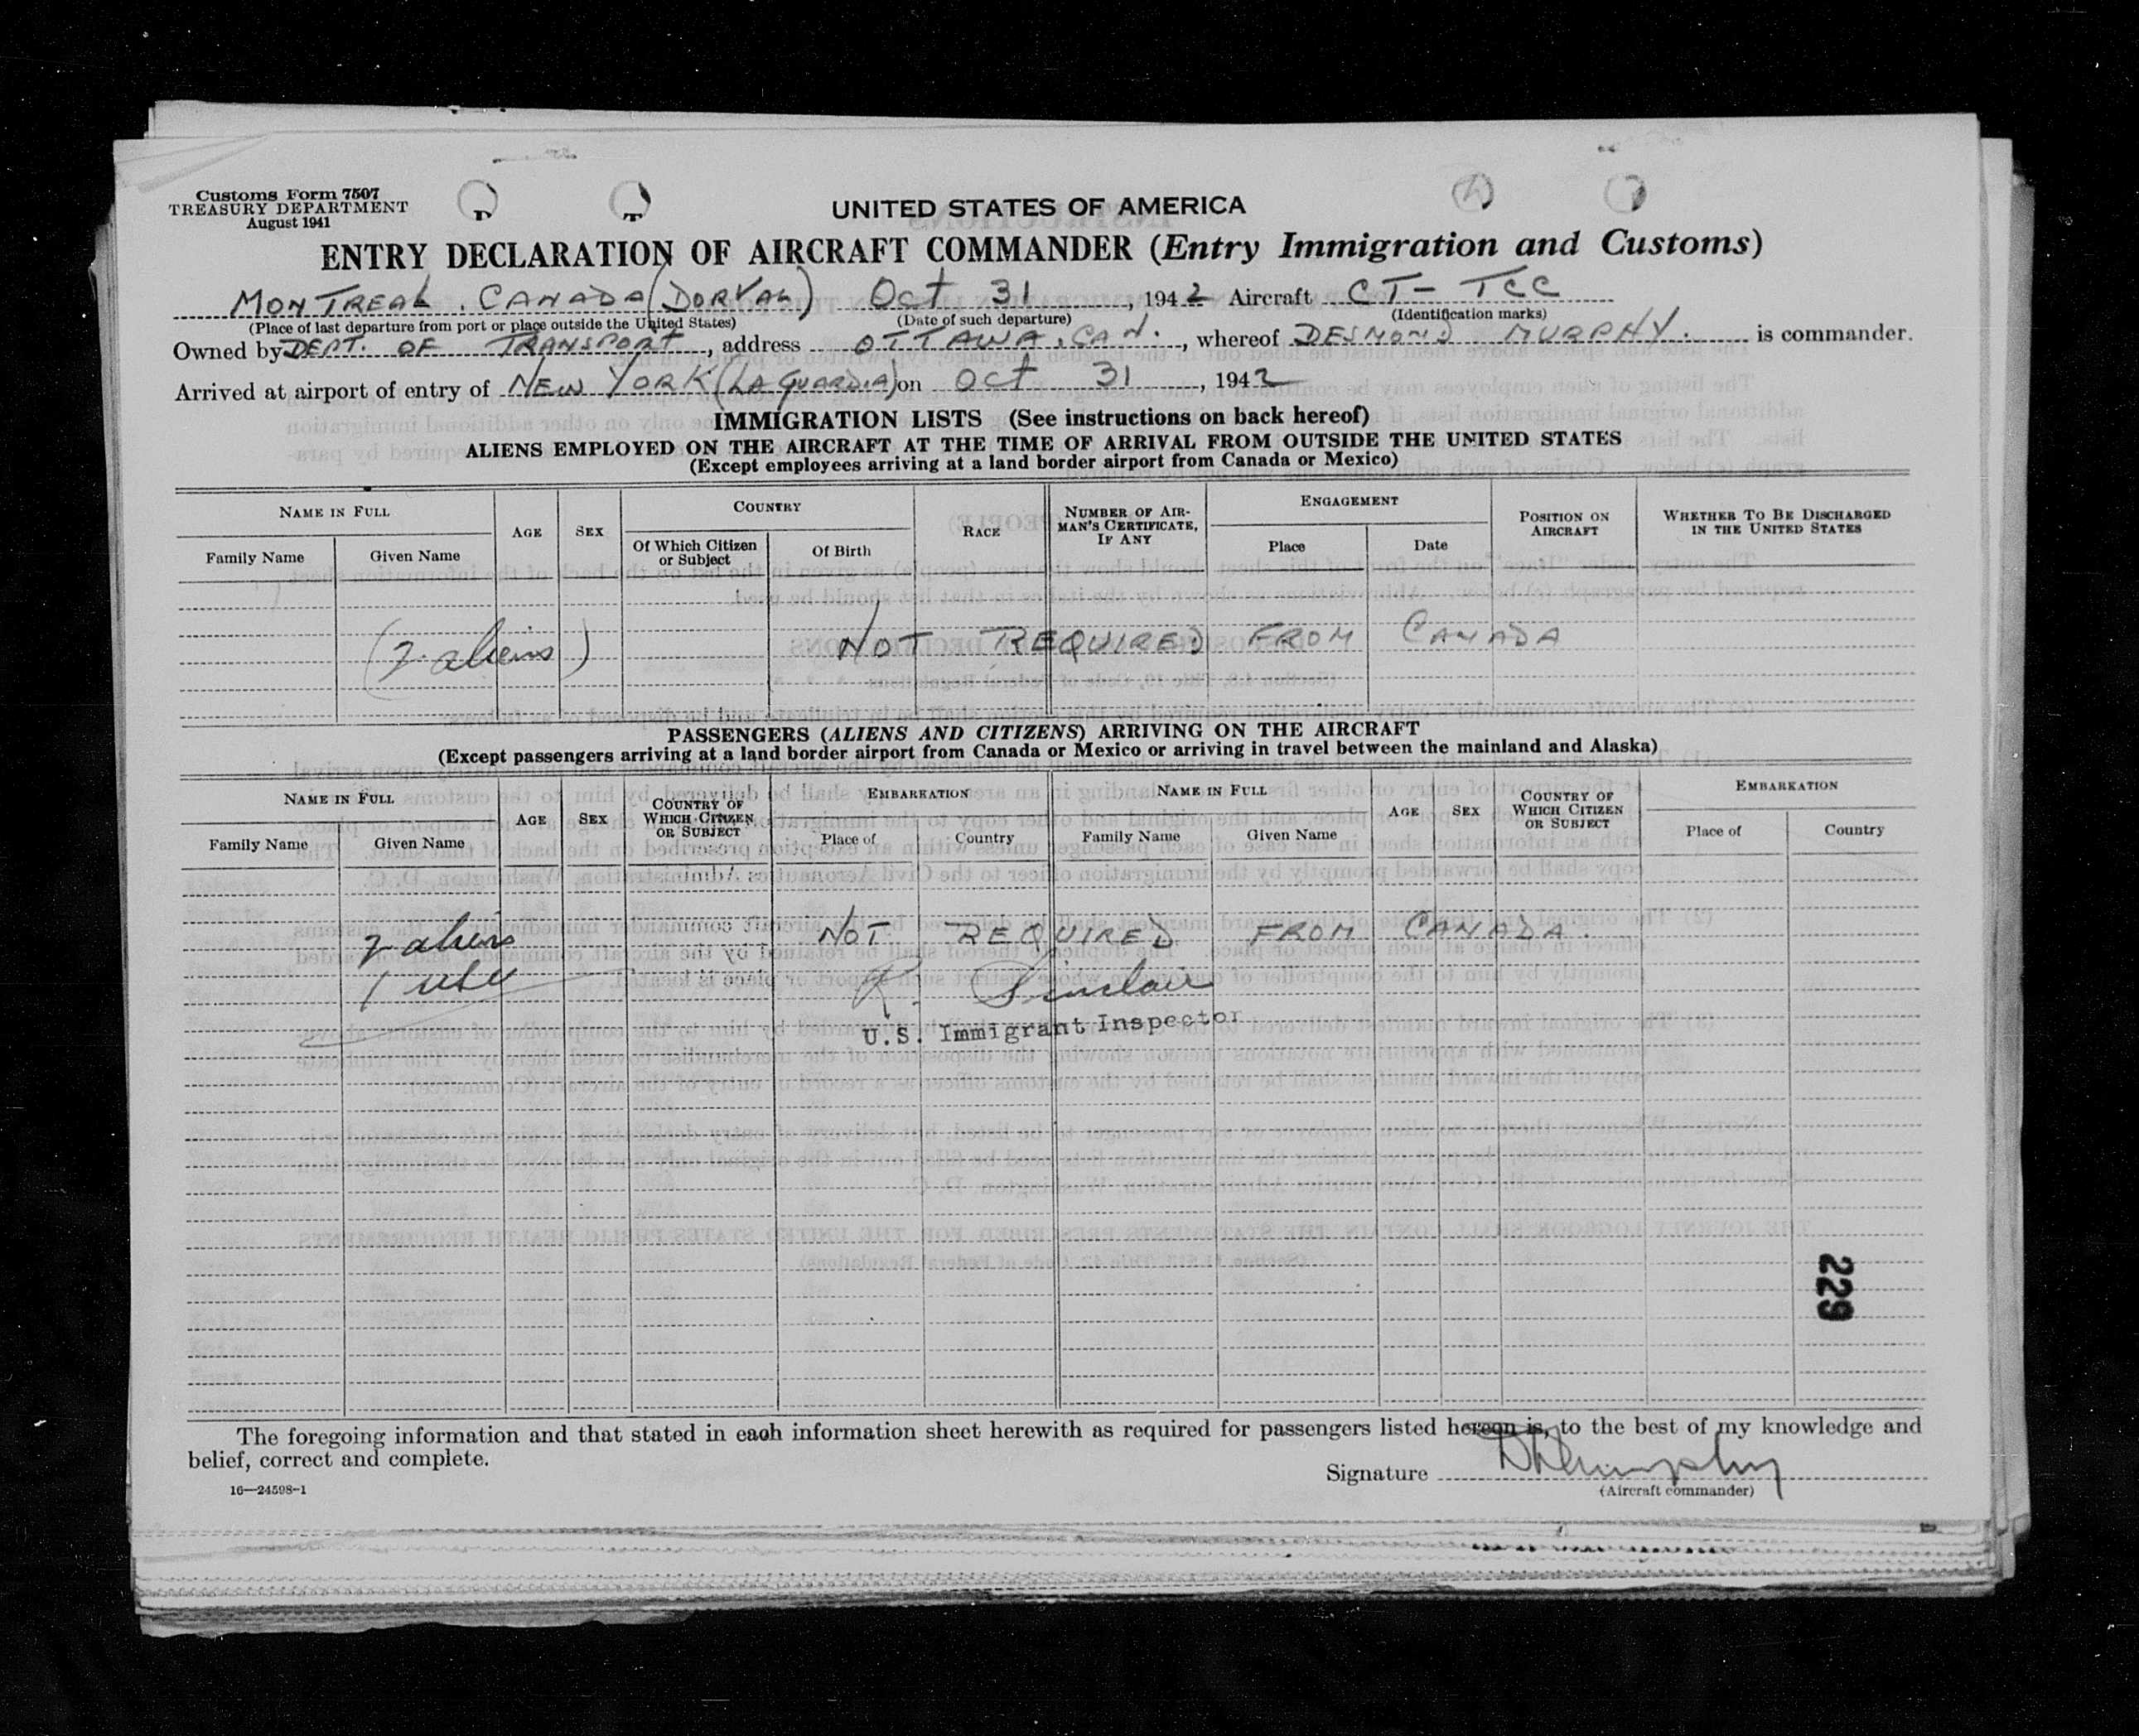 Customs Form 7507
TREASURY DEPARTMENT
August 1941
UNITED STATES OF AMERICA
ENTRY DECLARATION OF AIRCRAFT COMMANDER (Entry Immigration and Customs)
MONTREAL. CANADA (DORVAL) Oct 31, 1942 Aircraft CT-TCC
(Place of last departure from port or place outside the United States) (Date of such departure) (Identification marks)
Owned by DEPT. OF TRANSPORT, address OTTAWA. CAN., whereof DESMOND MURPHY. is commander.
Arrived at airport of entry of NEW YORK (LA GUARDIA) on Oct 31, 1942
IMMIGRATION LISTS (See instructions on back hereof)
ALIENS EMPLOYED ON THE AIRCRAFT AT THE TIME OF ARRIVAL FROM OUTSIDE THE UNITED STATES
(Except employees arriving at a land border airport from Canada or Mexico)
NAME IN FULL
Family Name
Given Name
AGE
SEX
COUNTRY
Of Which Citizen
or Subject
Of Birth
RACE
NUMBER OF AIR-
MAN'S CERTIFICATE,
IF ANY
ENGAGEMENT
Place
Date
POSITION ON
AIRCRAFT
WHETHER TO BE DISCHARGED
IN THE UNITED STATES
(2 aliens) NOT REQUIRED FROM CANADA
PASSENGERS (ALIENS AND CITIZENS) ARRIVING ON THE AIRCRAFT
(Except passengers arriving at a land border airport from Canada or Mexico or arriving in travel between the mainland and Alaska)
NAME IN FULL
Family Name
Given Name
AGE
SEX
COUNTRY OF
WHICH CITIZEN
OR SUBJECT
EMBARKATION
Place of
Country
NAME IN FULL
Family Name
Given Name
AGE
SEX
COUNTRY OF
WHICH CITIZEN
OR SUBJECT
EMBARKATION
Place of
Country
2 aliens NOT REQUIRED FROM CANADA.
1 USC R. Sinclair
U.S. Immigrant Inspector
229
The foregoing information and that stated in each information sheet herewith as required for passengers listed hereon is, to the best of my knowledge and
belief, correct and complete.
Signature D Murphy
(Aircraft commander)
16—24598-1